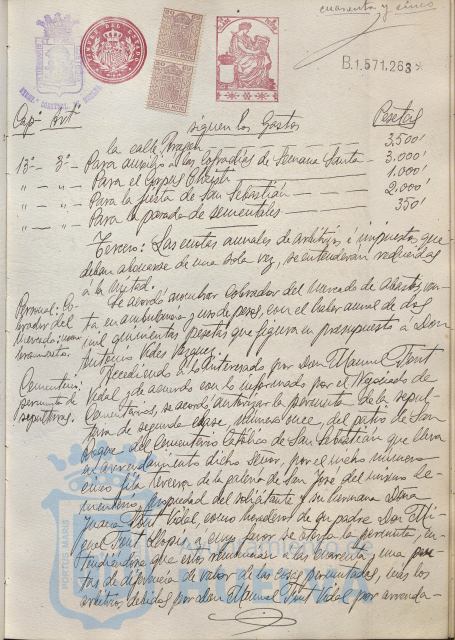 cuarenta y cinco
TIMBRE DEL ESTADO
B.1.571.263
Cap.º Art.º siguen los Gastos Pesetas
la calle 3.500'
13º - 3º - Para auxilio a las Cofradías de Semana Santa 3.000'
" - " - Para el Corpus Christi 1.000'
" - " - Para la fiesta de San Sebastián 2.000'
" - " - Para la parada de sementales 350'
Tercero: Las cuotas anuales de arbitrios é impuestos que
deban abonarse de una sola vez, se entenderán reducidas
á la mitad.
Se acordó nombrar Cobrador del Mercado de Abastos, ven-
ta en ambulancia y uso de pesas, con el haber anual de dos
mil quinientas pesetas que figura en presupuesto á Don
Antonio Vides Vargues.
Personal: Co-
brador del
Mercado: nom-
bramiento.
Accediendo a lo interesado por Don Manuel Font
Vidal y de acuerdo con lo informado por el Negociado de
Cementerios, se acordó autorizar la permuta de la sepul-
tura de segunda clase número once, del patio de San
Roque del Cementerio Católico de San Sebastián que lleva
en arrendamiento dicho Señor, por el nicho número
cinco fila tercera de la galería de San José del mismo Ce-
menterio, propiedad del solicitante y su hermana Doña
Juana Font Vidal, como herederos de su padre Don Mi-
guel Font á cuyo favor se otorga la permuta, en-
tendiéndose que estos renuncian a las cuarenta y una pese-
tas de diferencia de valor de las cosas permutadas, más los
arbitrios debidos por don Manuel Font Vidal por arrenda-
Cementerio:
permuta de
sepulturas.
PORTUS MARIS